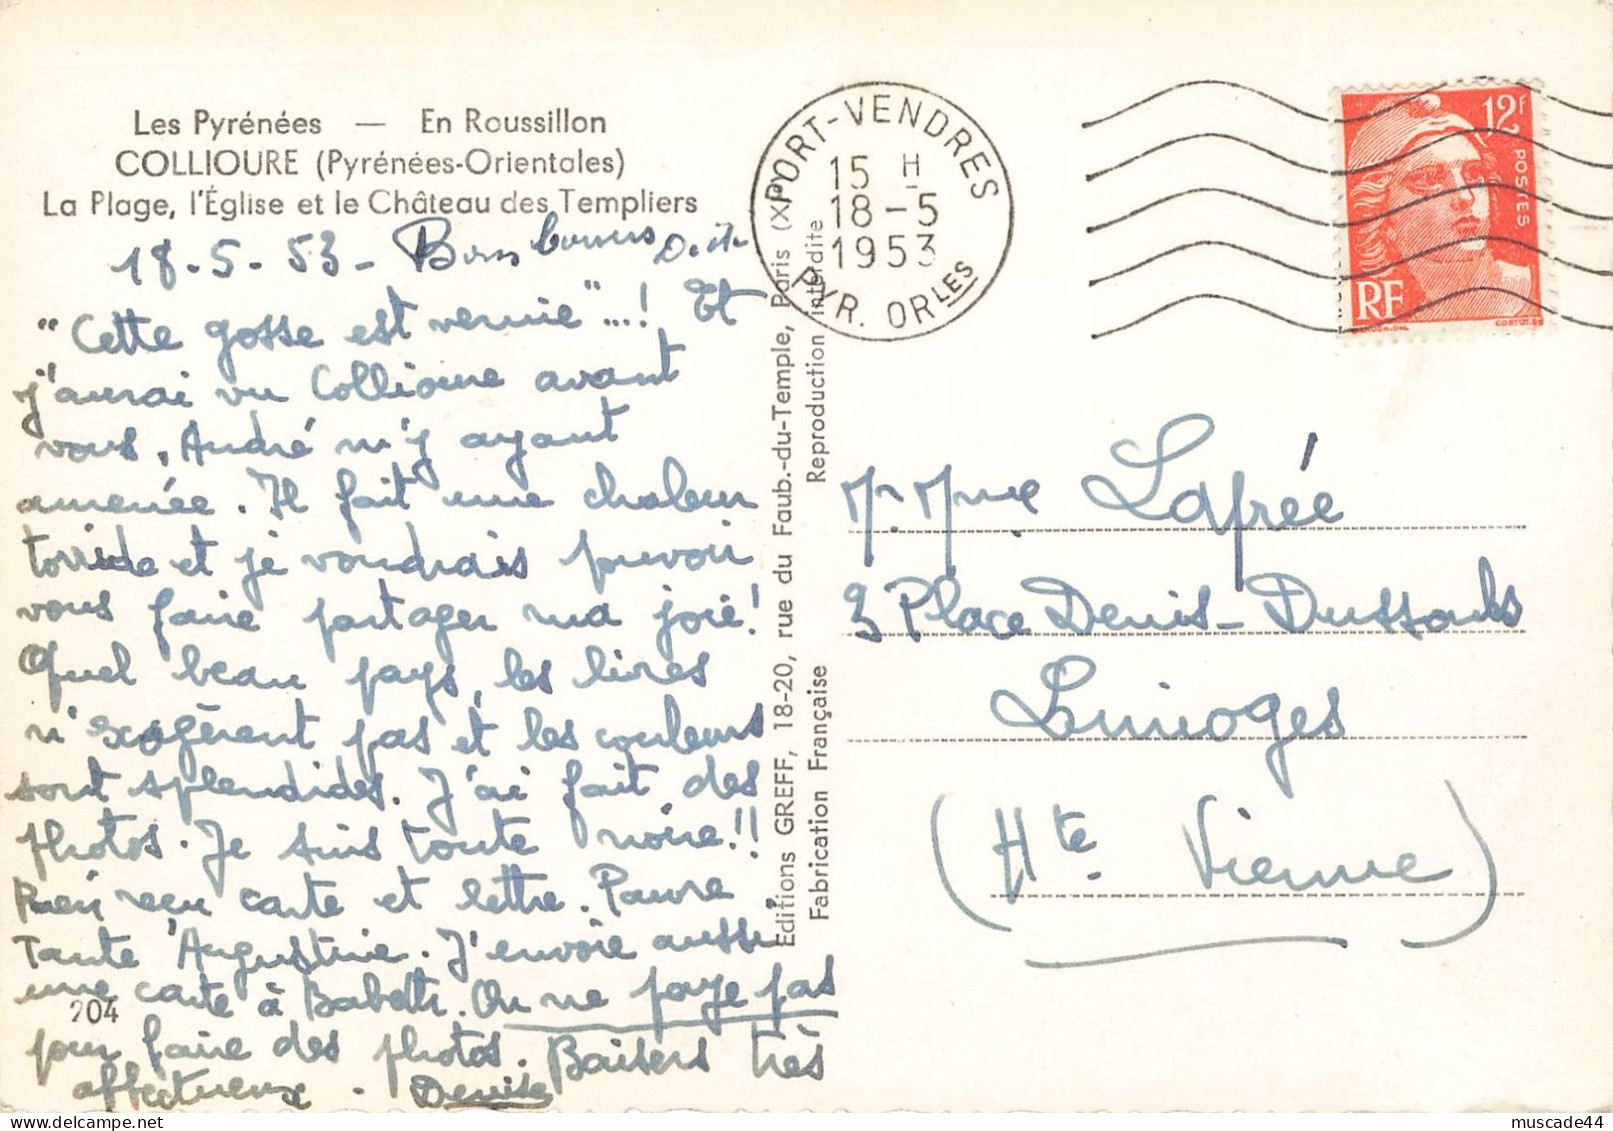 Les Pyrénées — En Roussillon
COLLIOURE (Pyrénées-Orientales)
La Plage, l'Église et le Château des Templiers
18-5-53 -
"Cette gosse est vernie"...! Et
j'aurai vu Collioure avant
vous, André m'y ayant
amenée. Il fait une chaleur
torride et je voudrais pouvoir
vous faire partager ma joie!
Quel beau pays, les livres
n'exagèrent pas et les couleurs
sont splendides. J'ai fait des
photos. Je suis toute noire!!
Bien reçu carte et lettre. Pauvre
Tante Augustine. J'envoie aussi
une carte à Babette. On ne paye pas
pour faire des photos. Baisers très
affectueux. Denise
204
Editions GREFF, 18-20, rue du Faub.-du-Temple, Paris (XIe)
Fabrication Française
Reproduction interdite
PORT-VENDRES
15 H
18-5
1953
PYR. ORLES
12F
POSTES
RF
M. Mme Lafrée
3 Place Denis-Dussoubs
Limoges
(Hte Vienne)
muscade44